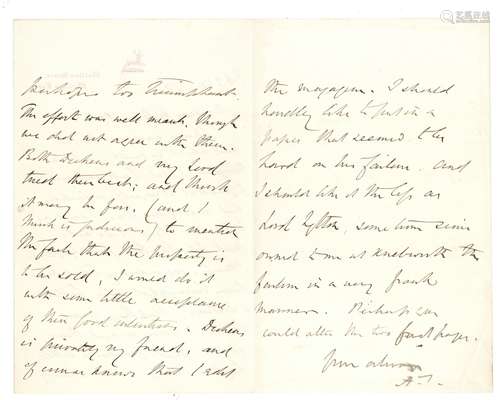 perhaps too triumphant.
The effort was well meant, though
we did not agree with them.
Both Dickens and my Lord
tried their best; and I think
it may be fair, (and I
think is judicious) to mention
the fact that the property is
to be sold, I would do it
with some little acceptance
of their good intentions. Dickens
is privately my friend, and
of course knows that I edit
the magazine. I should
hardly like to put in a
paper that seemed to be
hard on his failure. And
I should like it the less as
Lord Lytton, some time since
owned to me at Knebworth the
failure in a very frank
manner. Perhaps you
could alter the two first pages.
Yours always
A. T.